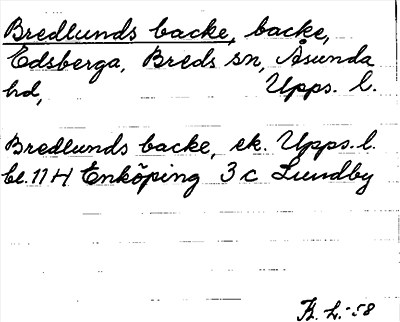 Bredlunds backe, backe,
Edsberga, Breds sn, Åsunda
hd, Upps. l.
Bredlunds backe, ek. Upps. l.
bl. 11 H Enköping 3 c Lundby
K. L. -58